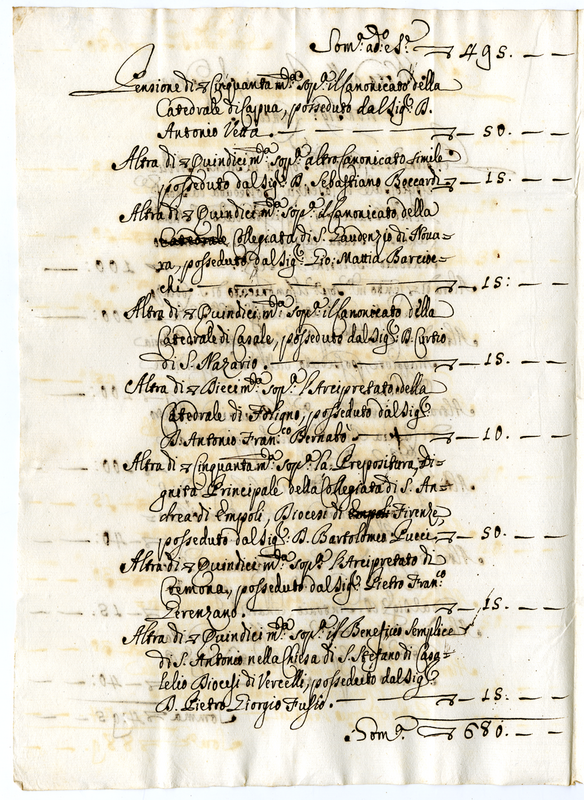 Som.ª ad.º e S.ª — 495. — —
Pensione di ▽ Cinquanta m.ta sop.ª il Canonicato della
Catedrale di Capua, posseduto dal Sig.r D.
Antonio Vetta. — 50. — —
Altra di ▽ Quindici m.ta sop.ª altro Canonicato simile
posseduto dal Sig.r D. Sebastiano Boccardi — 15. — —
Altra di ▽ Quindici m.ta sop.ª il Canonicato della
Catedrale Collegiata di S. Gaudenzio di Noua=
ra, posseduto dal Sig.r Gio: Mattia
chi — 15: — —
Altra di ▽ Quindici m.ta sop.ª il Canonicato della
Catedrale di Casale, posseduto dal Sig.r D. Curtio
di S. Nazario. — 15. — —
Altra di ▽ Dieci m.ta sop.ª l'Arcipretato della
Catedrale di Foligno, posseduto dal Sig.r
D. Antonio Fran.co Bernabò — 10. — —
Altra di ▽ Cinquanta m.ta sop.ª la Prepositura, Di=
gnità Principale della Collegiata di S. An=
drea di Empoli, Diocesi di Empoli Firenze,
posseduto dal Sig.r D. Bartolomeo Pucci — 50. — —
Altra di ▽ Quindici m.ta sop.ª l'Arcipretato di
Cremona, posseduto dal Sig.r Pietro Fran.co
Terenzano. — 15. — —
Altra di ▽ Quindici m.ta sop.ª il Beneficio semplice
di S. Antonio nella Chiesa di S. Stefano di Casa=
lelio Diocesi di Vercelli, posseduto dal Sig.r
D. Pietro Giorgio Fusio. — 15. — —
Som.ª — 680. — —